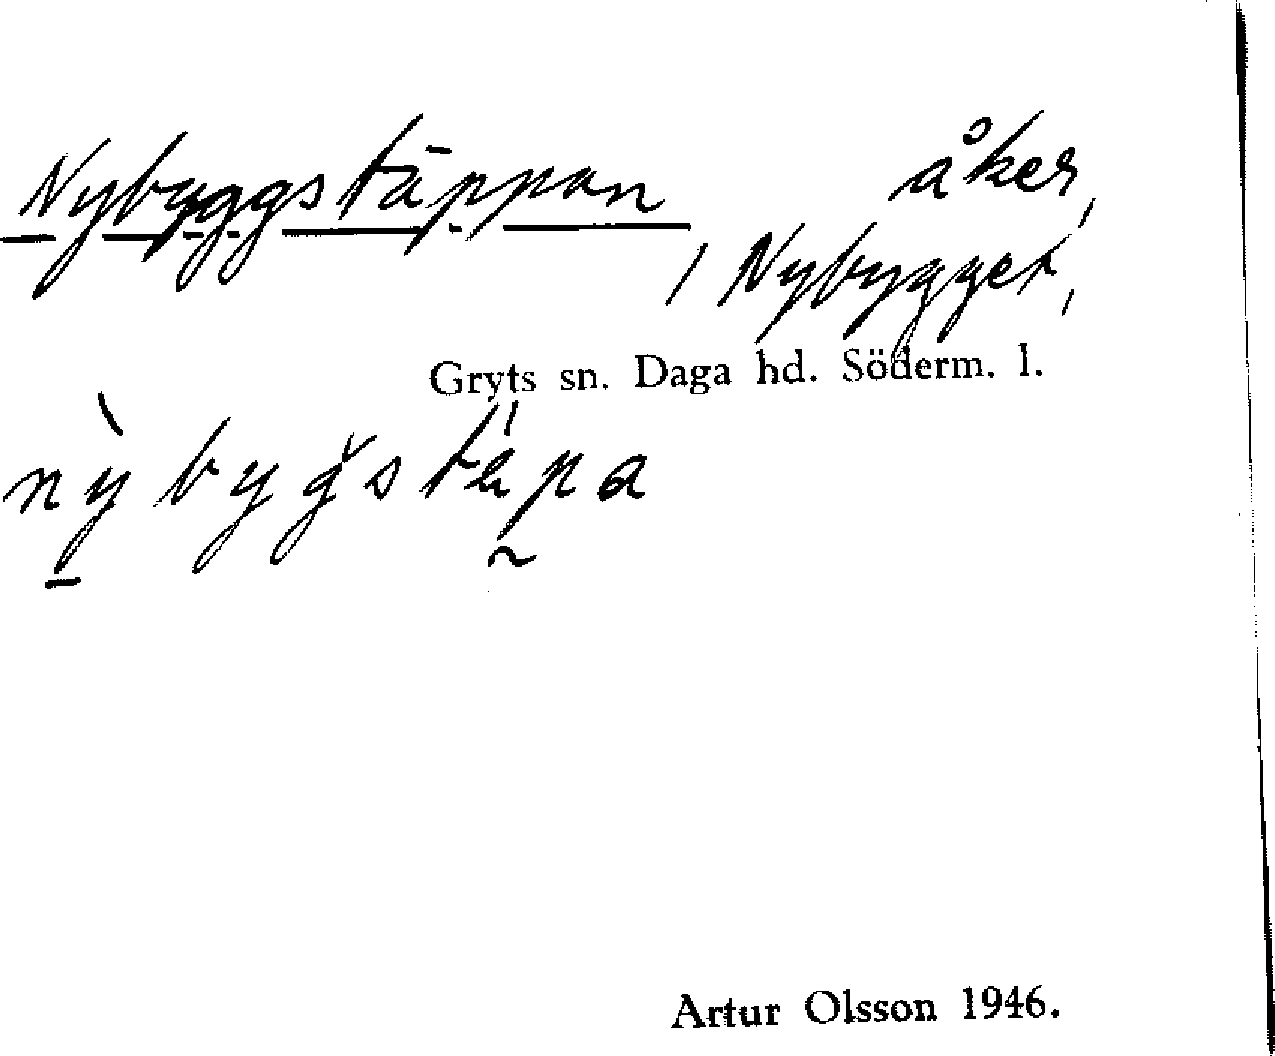 Nybyggstäppan, åker,
Nybygget,
Gryts sn. Daga hd. Söderm. l.
nỳbygstépa
Artur Olsson 1946.